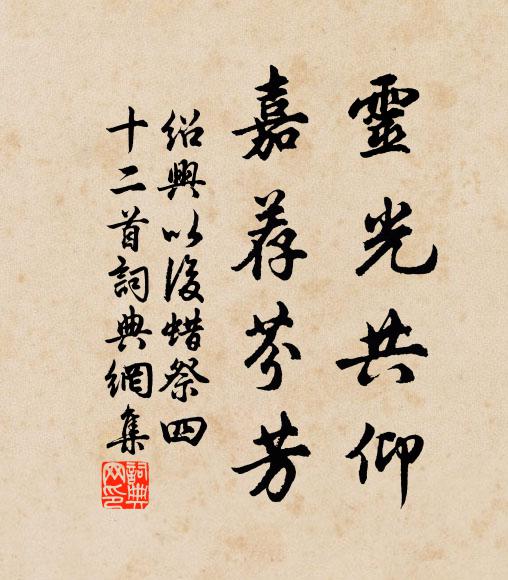 靈光共仰
嘉荐芬芳
紹興以後蜡祭四
十二首詞典網集
詞典网印